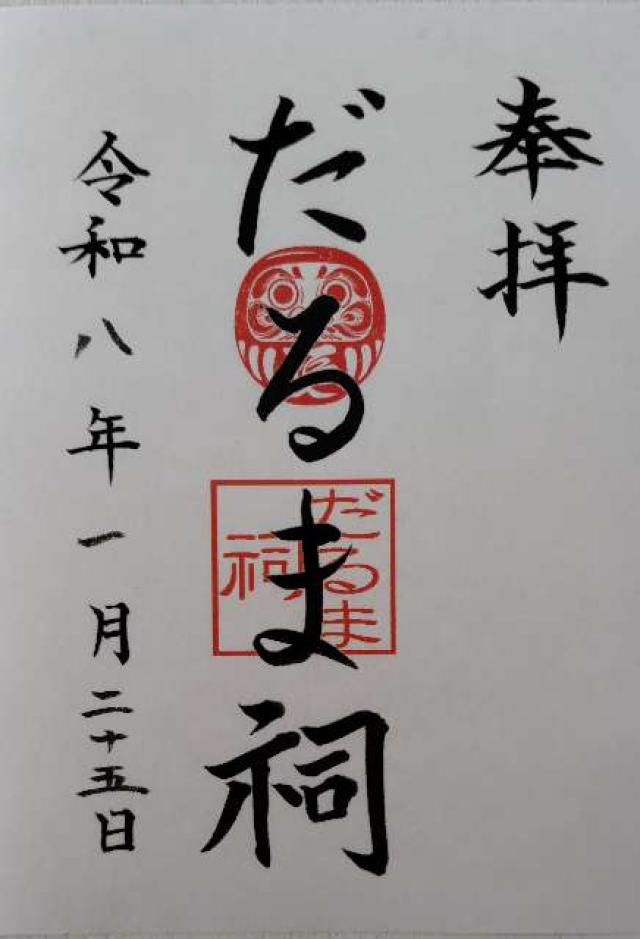 奉拝
だるま祠
だるま
祠
令和八年一月二十五日